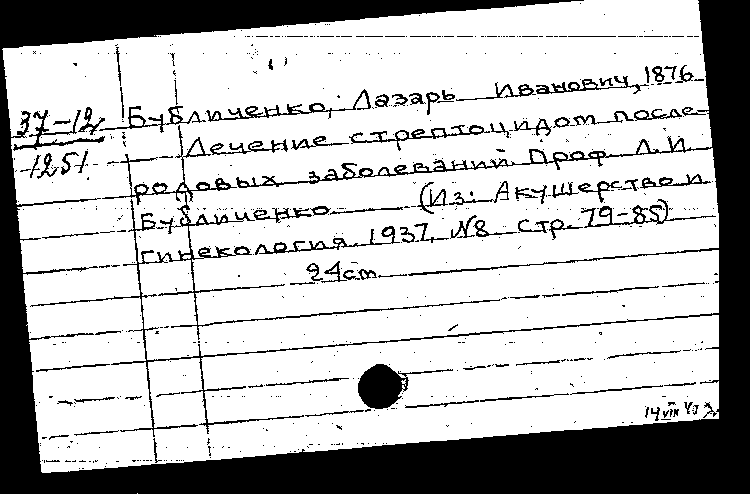 37-12
1251.
Бубличенко, Лазарь Иванович, 1876
Лечение стрептоцидом после-
родовых заболеваний. Проф. Л. И.
Бубличенко (Из: Акушерство и
гинекология. 1937, №8 стр. 79-85)
24cm
14 VIII